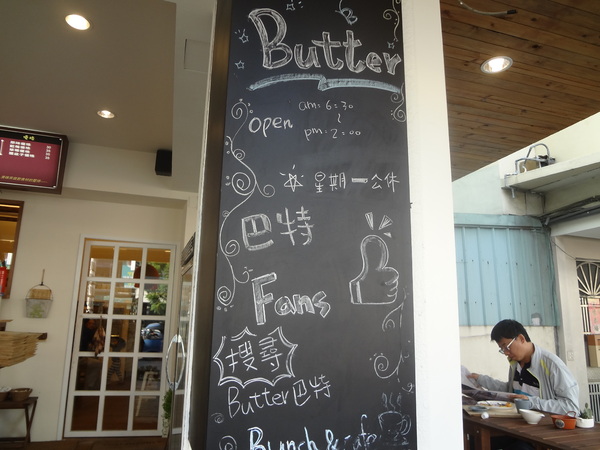 Butter
open
am:6:30
~
pm:2:00
☆ 星期一公休
巴特
Fans
搜尋
Butter巴特
Bunch & cafe